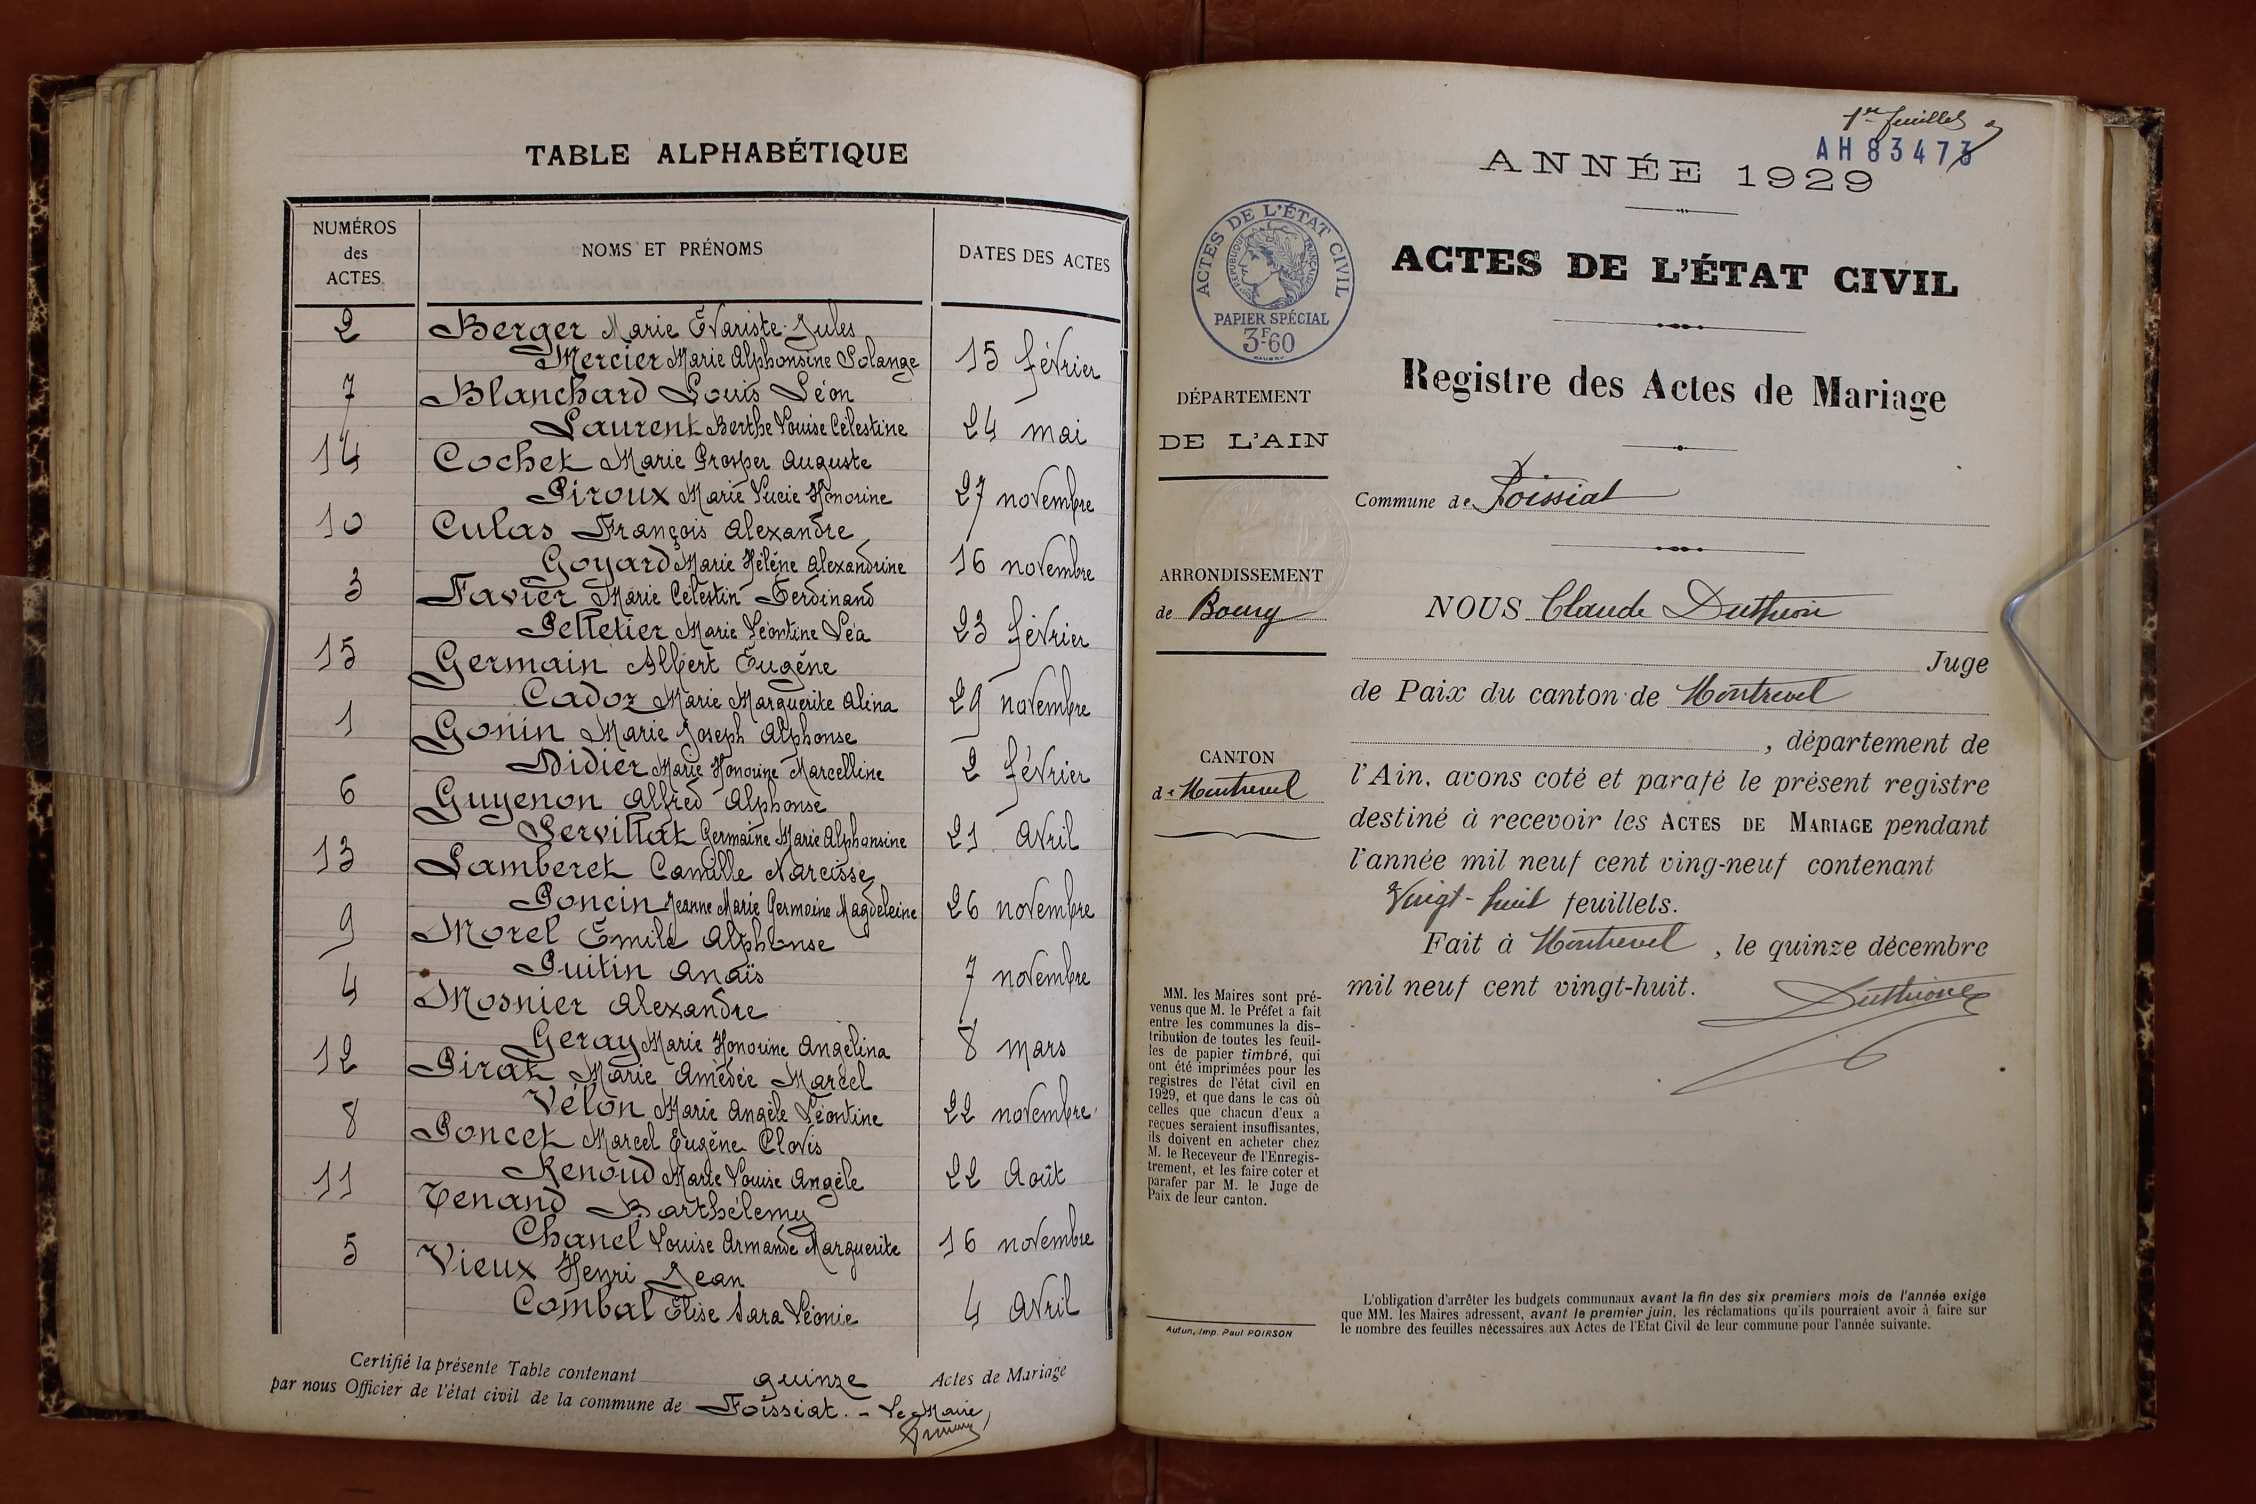 TABLE ALPHABÉTIQUE
NUMÉROS des ACTES
NOMS ET PRÉNOMS
DATES DES ACTES
2 Berger Marie Évariste Jules
Mercier Marie Alphonsine Solange 15 février
7 Blanchard Louis Léon
Laurent Berthe Louise Célestine 24 mai
14 Cochet Marie Prosper Auguste
Piroux Marie Lucie Honorine 27 novembre
10 Culas François Alexandre
Goyard Marie Hélène Alexandrine 16 novembre
3 Favier Marie Célestin Ferdinand
Pelletier Marie Léontine Léa 23 février
15 Germain Albert Eugène
Cadoz Marie Marguerite Alina 29 novembre
1 Gonin Marie Joseph Alphonse
Didier Marie Honorine Marcelline 2 février
6 Guyenon Alfred Alphonse
Servillat Germaine Marie Alphonsine 21 Avril
13 Lamberet Camille Narcisse
Poncin Jeanne Marie Germaine Magdeleine 26 novembre
9 Morel Émile Alphonse
Puitin Anaïs 7 novembre
4 Mosnier Alexandre
Geray Marie Honorine Angelina 8 mars
12 Pirat Marie Amédée Marcel
Vélon Marie Angèle Léontine 22 novembre
8 Poncet Marcel Eugène Clovis
Renoud Marie Louise Angèle 22 Août
11 Tenand Barthélemy
Chanel Louise Armande Marguerite 16 novembre
5 Vieux Henri Jean
Combal Élise Sara Léonie 4 Avril
Certifié la présente Table contenant quinze Actes de Mariage
par nous Officier de l'état civil de la commune de Foissiat. - Le Maire,
1er feuillet
AH 83473
ANNÉE 1929
ACTES DE L'ÉTAT CIVIL
RÉPUBLIQUE FRANÇAISE
PAPIER SPÉCIAL
3F60
ACTES DE L'ÉTAT CIVIL
Registre des Actes de Mariage
DÉPARTEMENT
DE L'AIN
Commune de Foissiat
ARRONDISSEMENT
de Bourg
NOUS Claude Duthion
Juge
de Paix du canton de Montrevel
, département de
CANTON
de Montrevel
l'Ain, avons coté et parafé le présent registre
destiné à recevoir les ACTES DE MARIAGE pendant
l'année mil neuf cent ving-neuf contenant
Vingt-huit feuillets.
Fait à Montrevel, le quinze décembre
mil neuf cent vingt-huit.
Duthion
MM. les Maires sont pré-
venus que M. le Préfet a fait
entre les communes la dis-
tribution de toutes les feuil-
les de papier timbré, qui
ont été imprimées pour les
registres de l'état civil en
1929, et que dans le cas où
celles que chacun d'eux a
reçues seraient insuffisantes,
ils doivent en acheter chez
M. le Receveur de l'Enregis-
trement, et les faire coter et
parafer par M. le Juge de
Paix de leur canton.
Autun, Imp. Paul POIRSON
L'obligation d'arrêter les budgets communaux avant la fin des six premiers mois de l'année exige
que MM. les Maires adressent, avant le premier juin, les réclamations qu'ils pourraient avoir à faire sur
le nombre des feuilles nécessaires aux Actes de l'Etat Civil de leur commune pour l'année suivante.